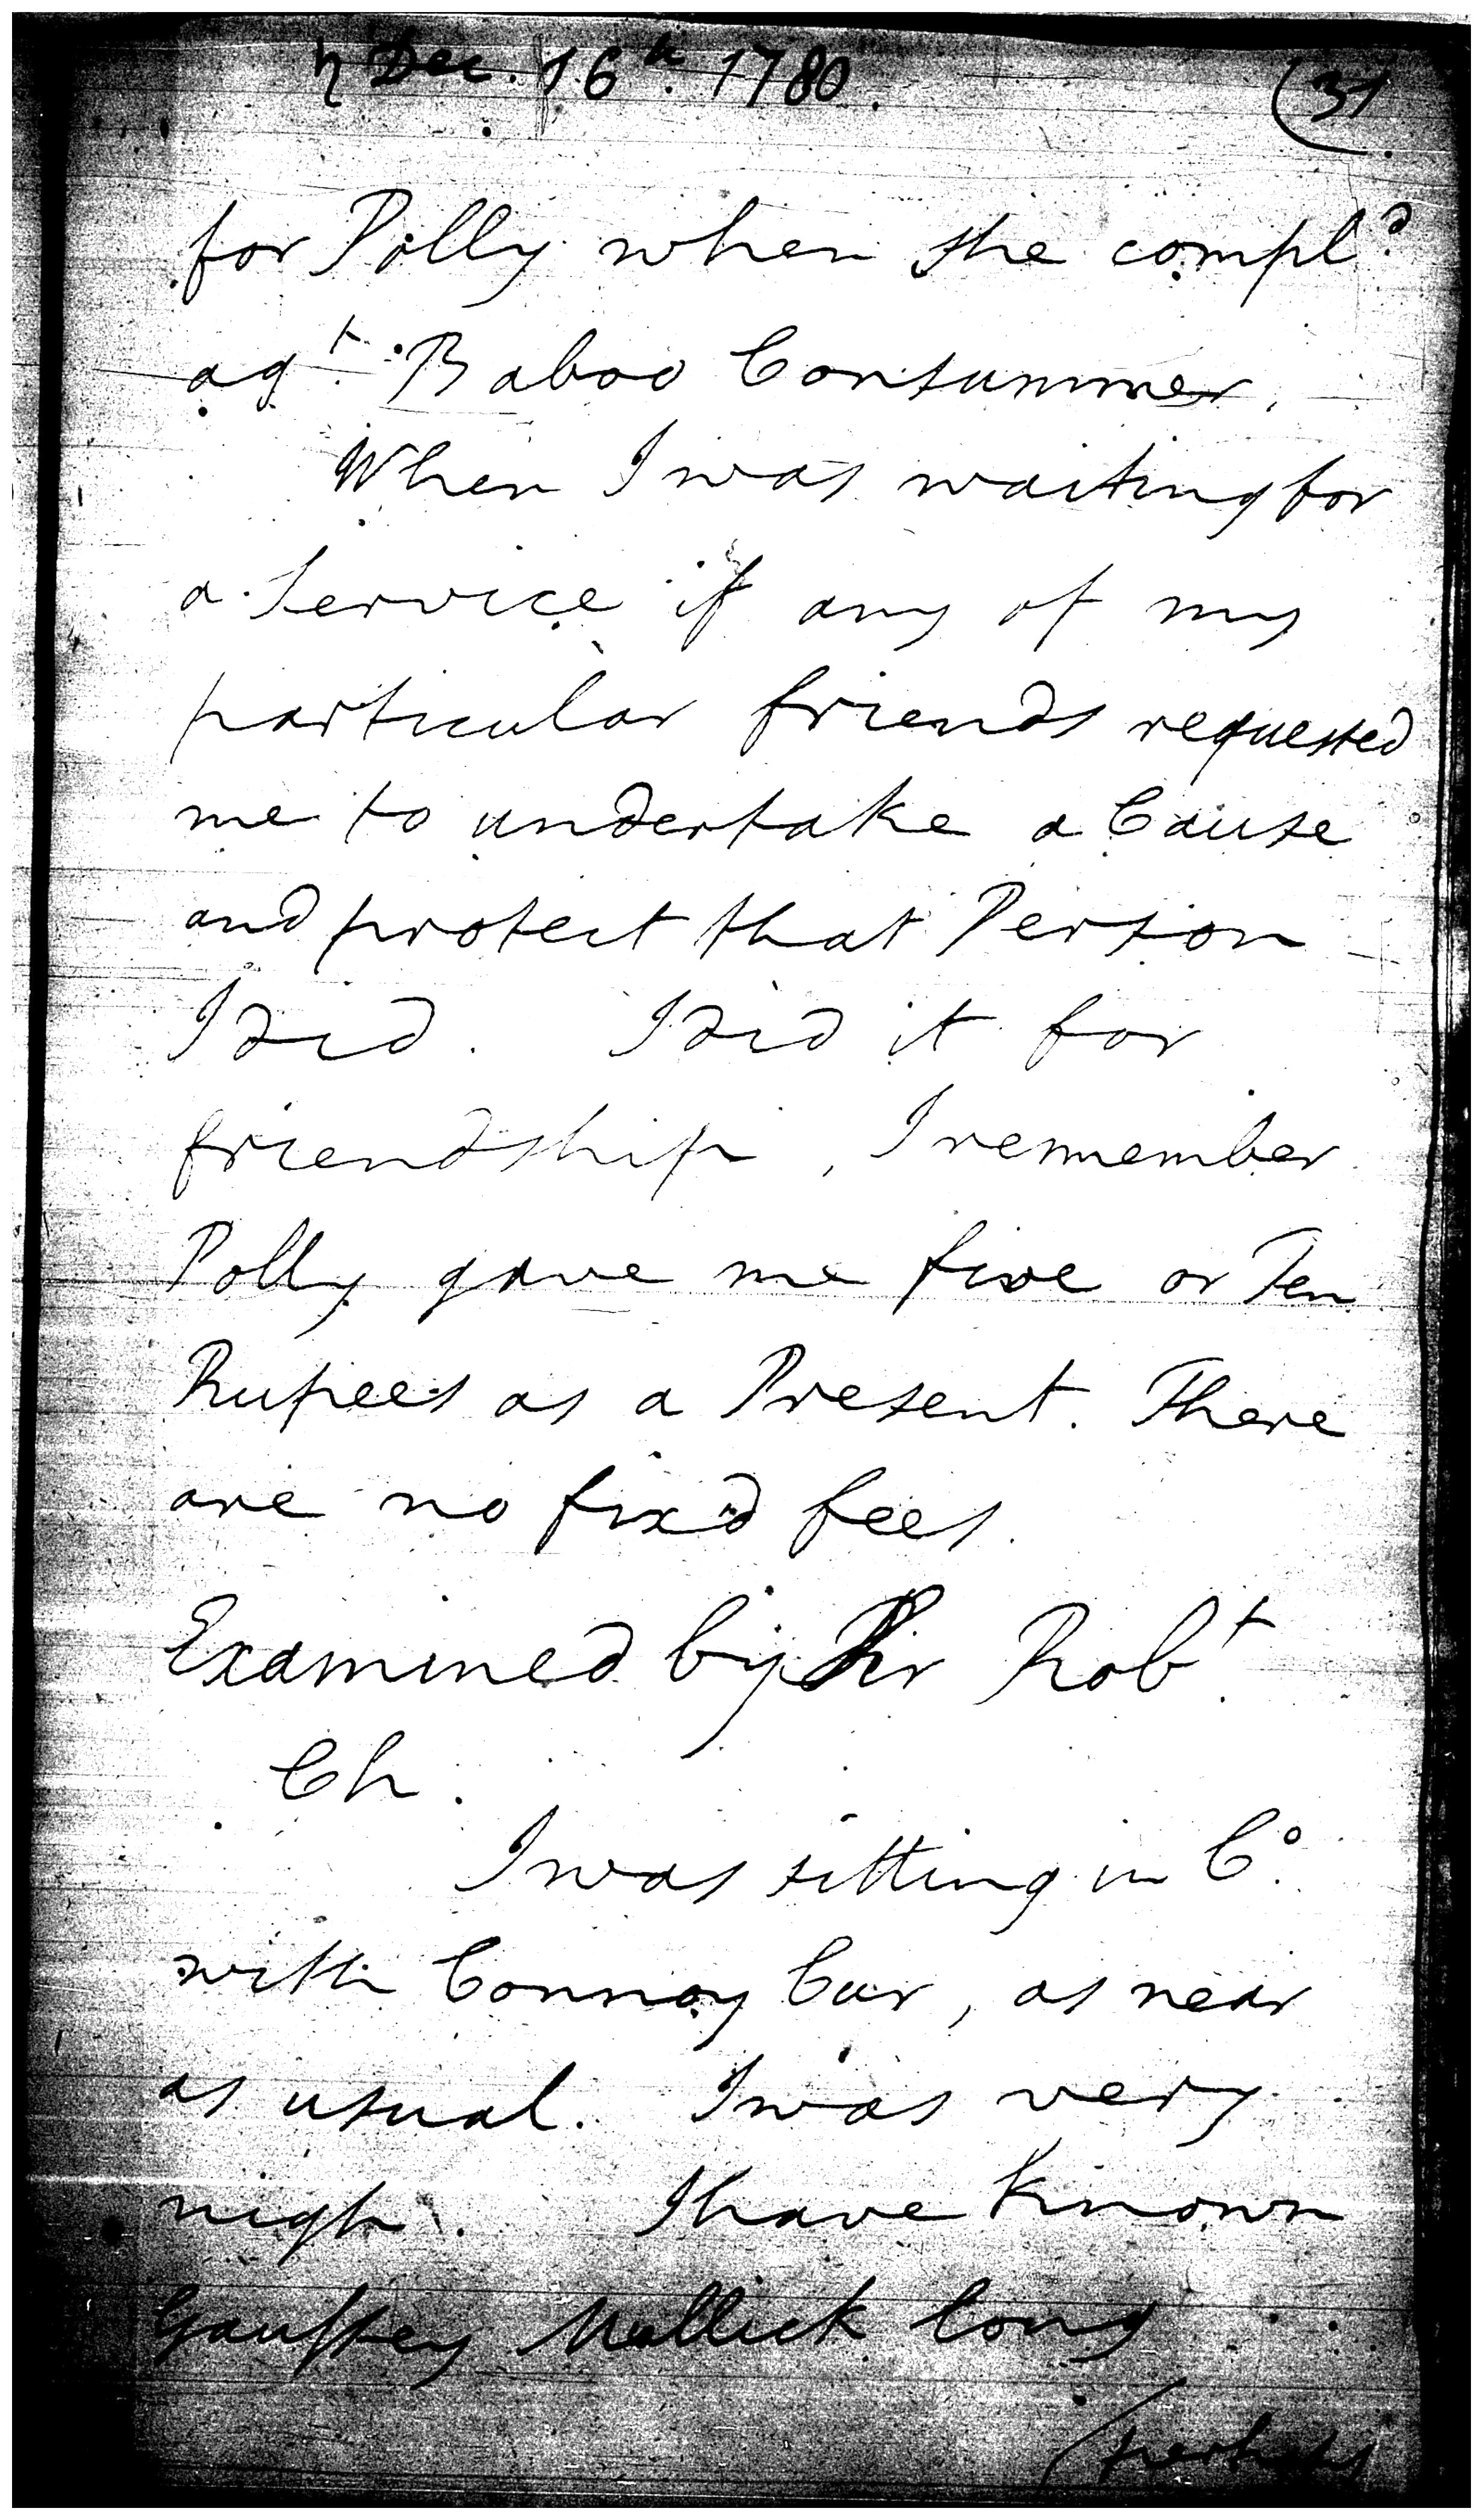 ♄ Dec. 16th. 1780. (31
for Polly when she compld.
agt. Baboo Consummer.
When I was waiting for
a Service if any of my
particular friends requested
me to undertake a Cause
and protect that Person
I did. I did it for
friendship, I remember
Polly gave me five or Ten
Rupees as a Present. There
are no fix'd fees.
Examined by Sir Robt.
Ch.
I was sitting in Co.
with Connoy Cur, as near
as usual. I was very
nigh. I have known
Mullick long
(perhaps